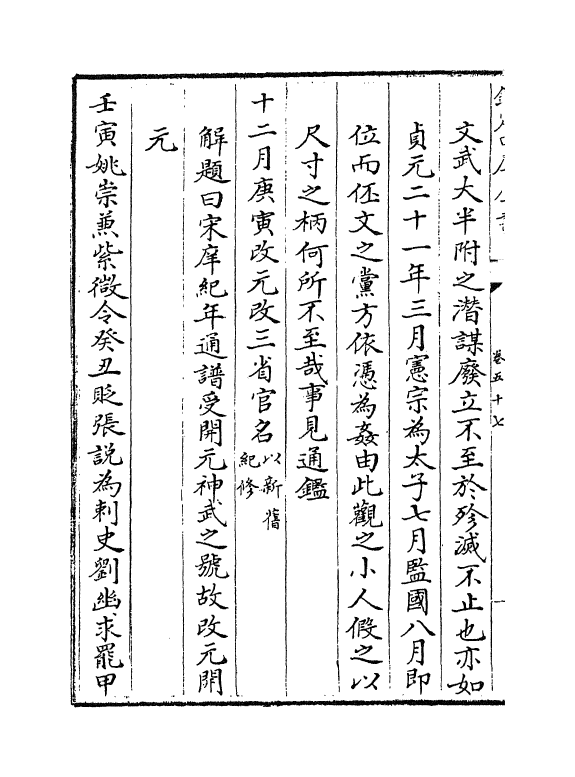 文武大半附之潛謀廢立不至於殄滅不止也亦如
貞元二十一年三月憲宗為太子七月監國八月即
位而伾文之黨方依憑為姦由此觀之小人假之以
尺寸之柄何所不至哉事見通鑑
十二月庚寅改元改三省官名以新舊紀修
解題曰宋庠紀年通譜受開元神武之號故改元開
元
壬寅姚崇兼紫微令癸丑貶張說為刺史劉幽求罷甲
卷五十七